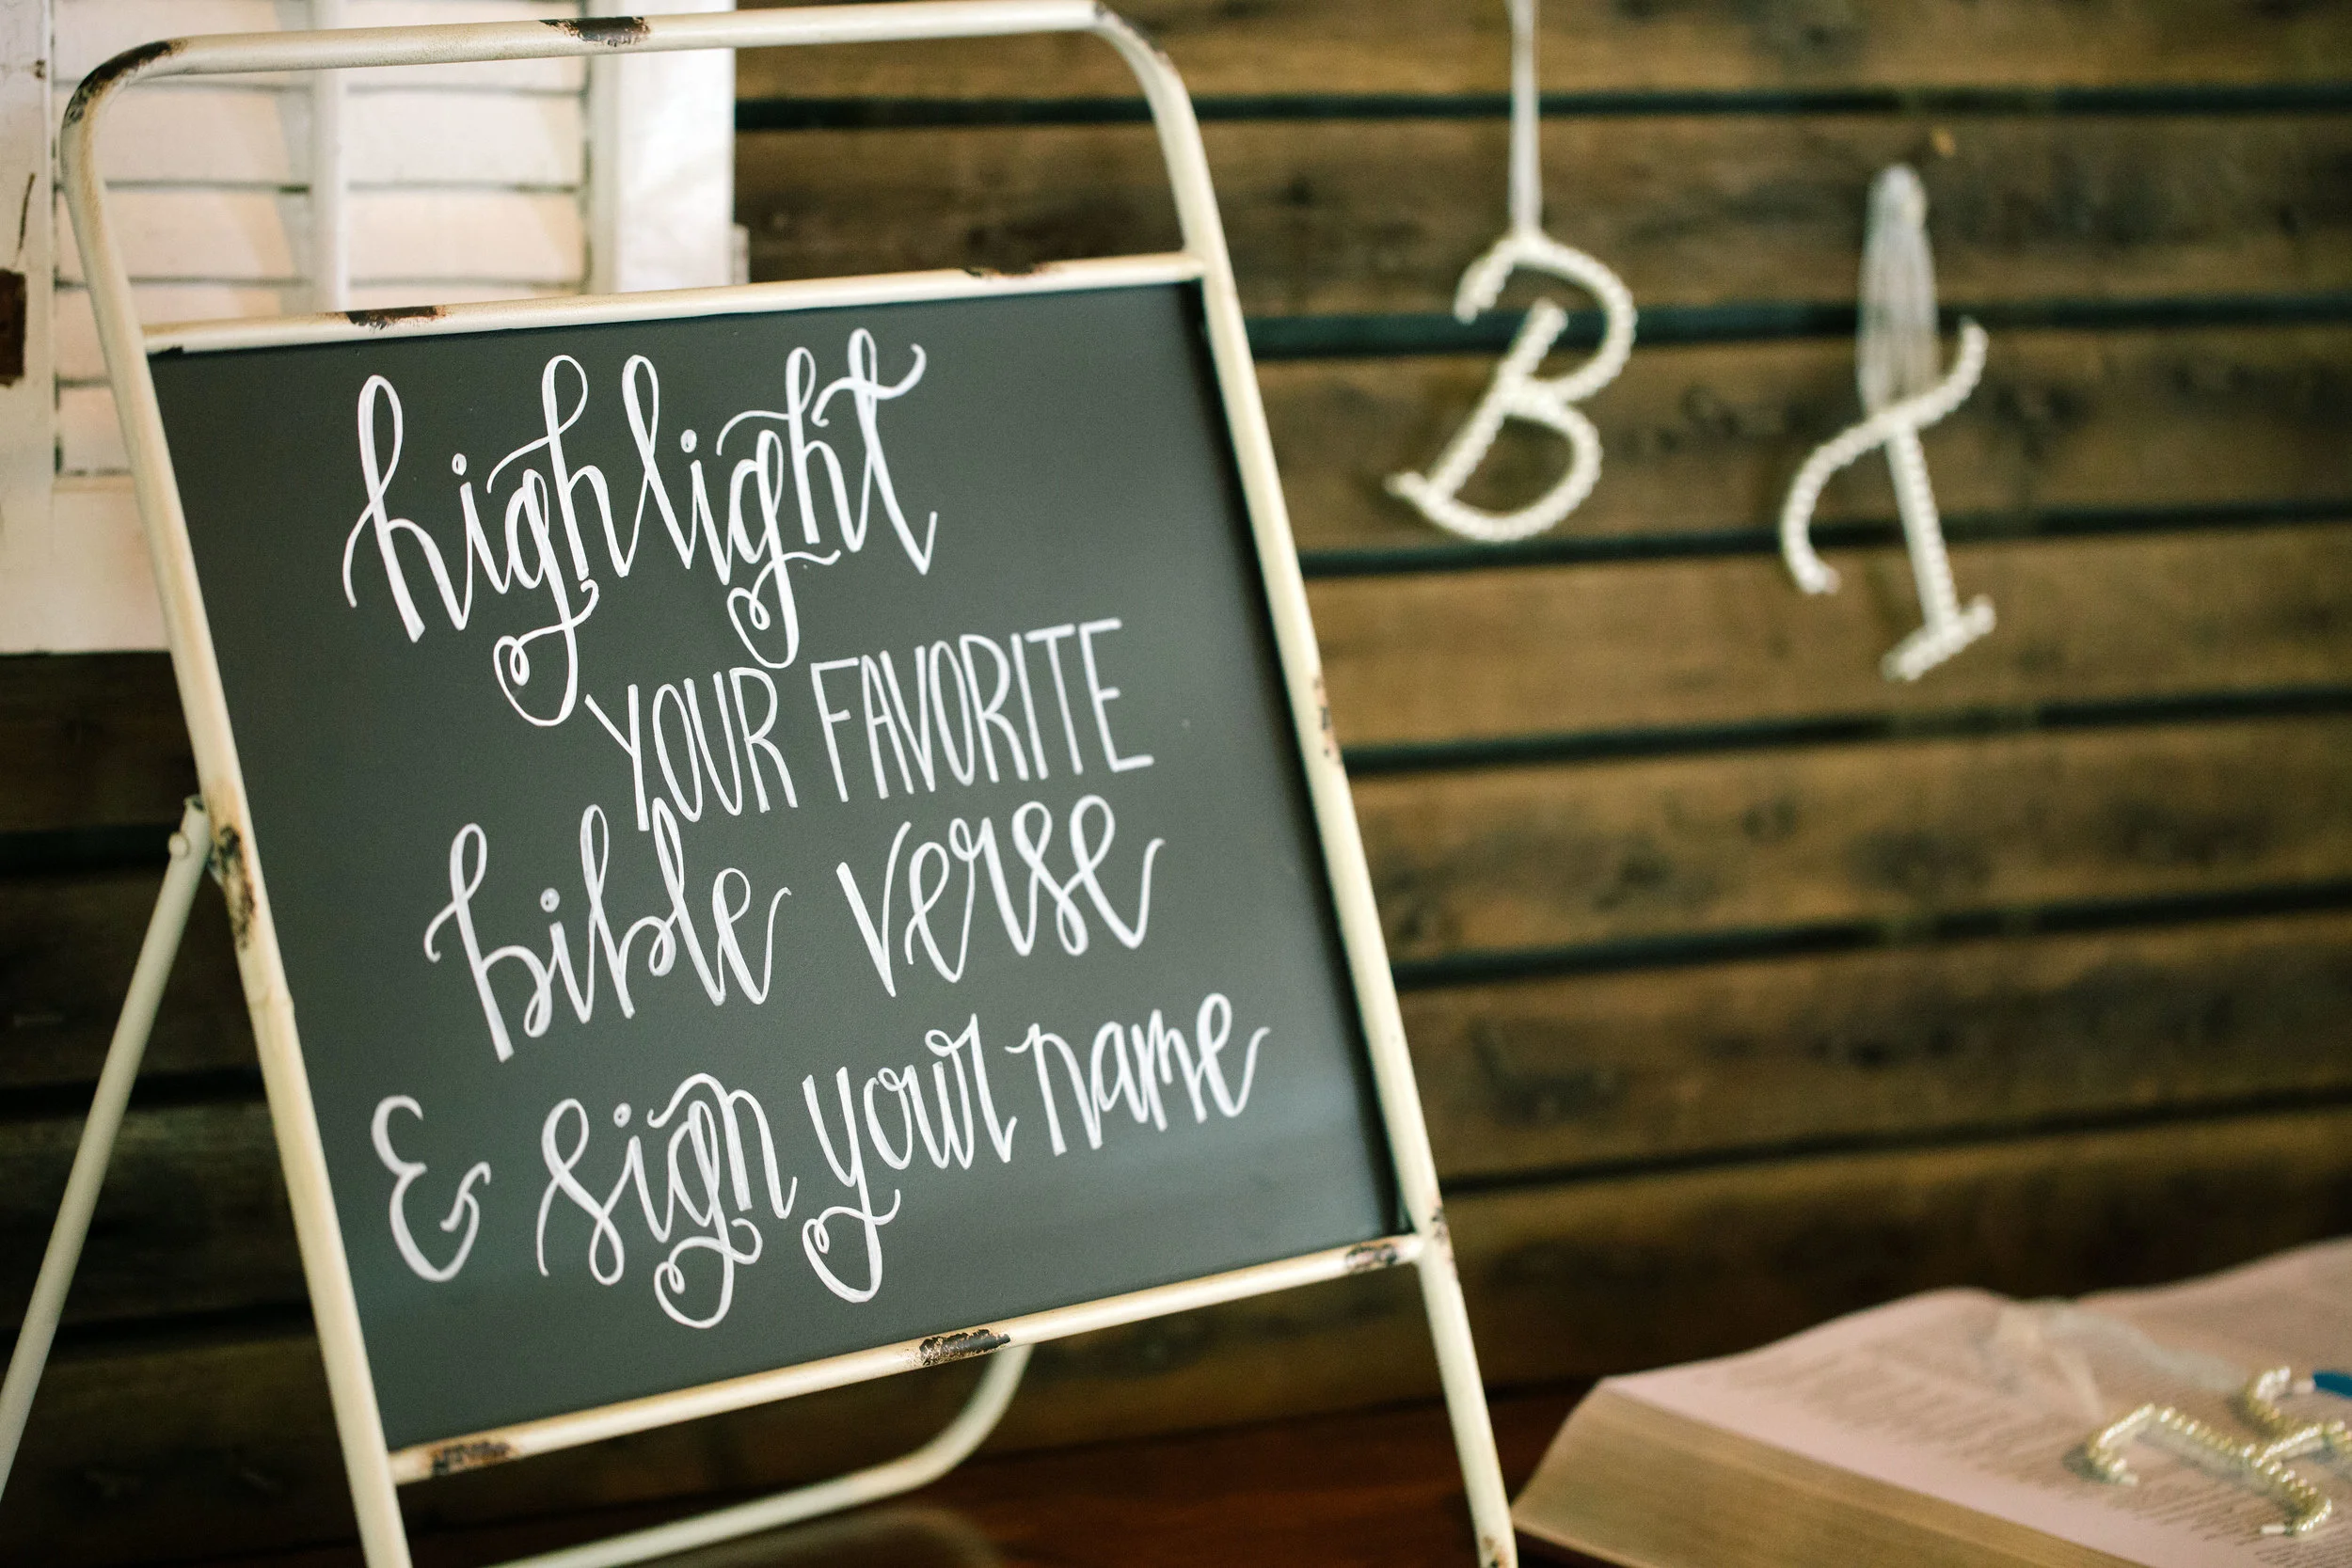 highlight
YOUR FAVORITE
bible verse
& sign your name
B